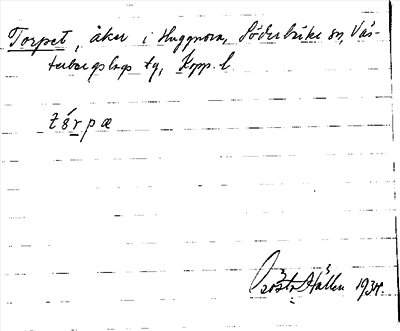 Torpet, åker i Huggnora, Söderbärke sn, Väs-
terbergslags tg, Kopp. l.
tórpæ
Gösta Hållen 1934.